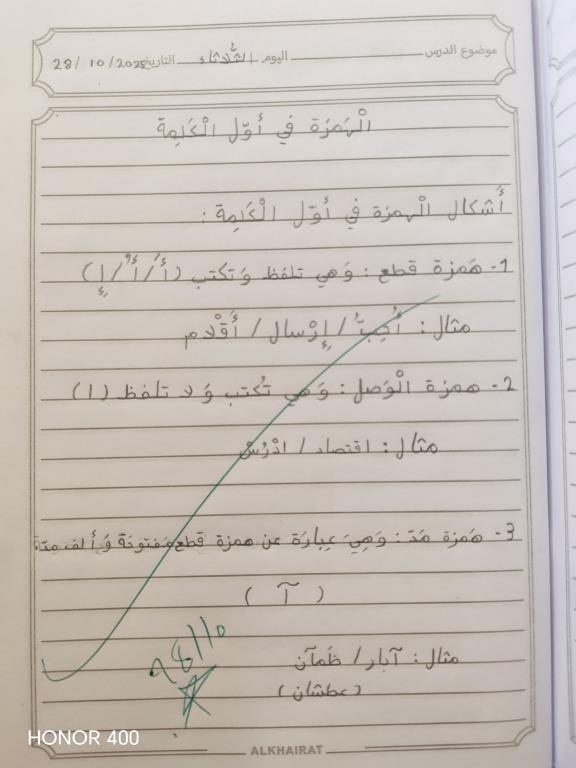 موضوع الدرس اليوم الثلاثاء التاريخ 28/10/2025
الْهَمزَة في أوّل الْكَلِمة
أَشكال الْهمزة في أوّل الْكَلِمة :
1- هَمزة قطع : وَهي تلفظ وَتكتب (أَ/أُ/إِ)
مثال : أُحِبُّ / إِرْسال / أَقْلام
2- همزة الْوَصل : وَهي تُكتب وَلا تلفظ (ا)
مثال : اقتصاد / ادْرُسْ
3- هَمزة مَدّ : وَهِيَ عِبارَة عن همزة قطع مَفتوحَة وَألف
( آ )
مثال : آبار / ظَمآن
(عطشان)
28/10
HONOR 400
ALKHAIRAT